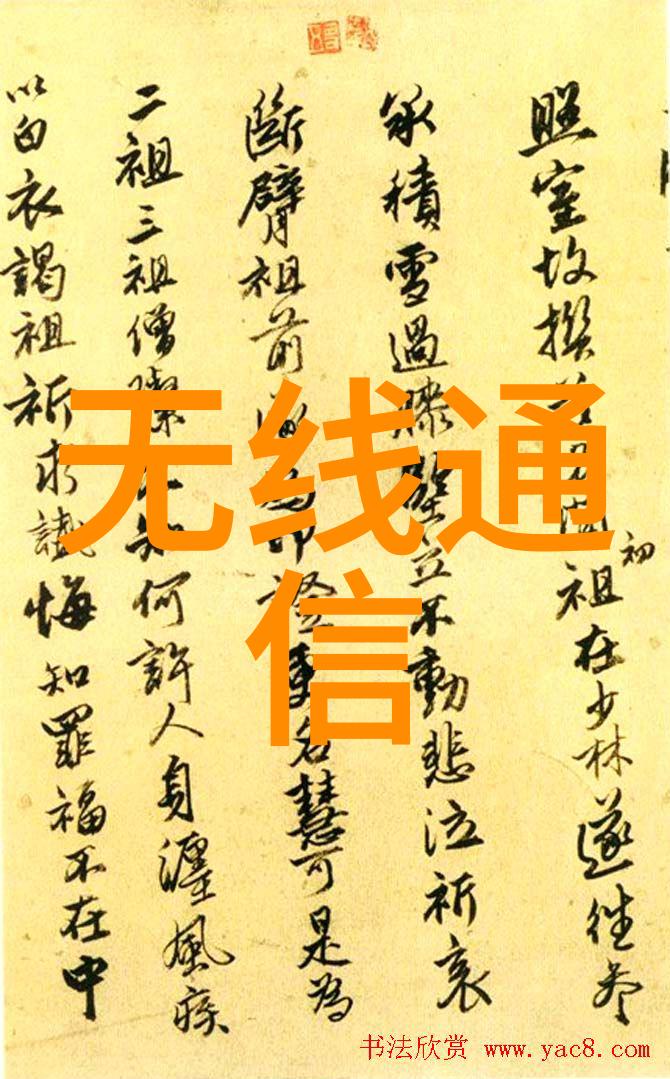 照室故撰 祖初在少林遂往参
承積雪過膝堅立不動悲泣祈哀
斷臂祖前 印證更名慧可是為
二祖三祖僧璨不知何許人身纏風疾
以白衣謁祖祈求懺悔知罪福不在中
无线通
信
书法欣赏 www.yac8.com